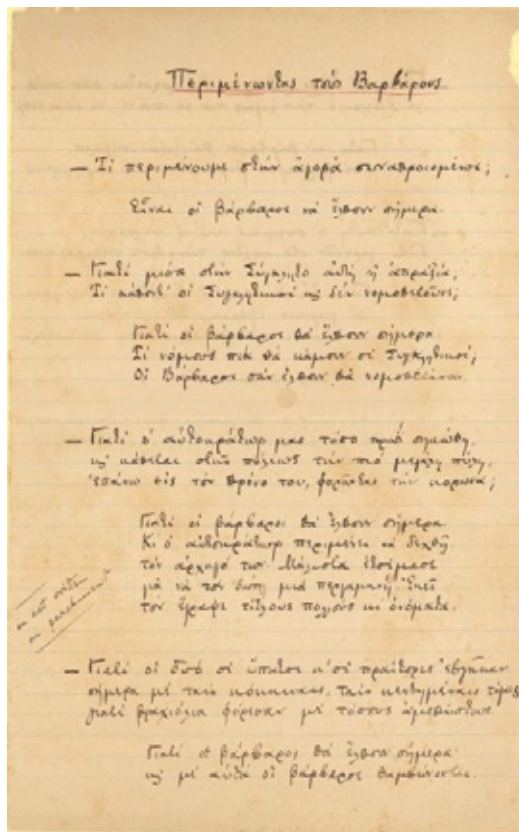 Περιμένοντας τους Βαρβάρους
— Τί περιμένουμε στην αγορά συναθροισμένοι;
Είναι οι βάρβαροι να έλθουν σήμερα.
— Γιατί μέσα στην Σύγκλητο αυτή η απραξία;
Τί κάθοντ' οι Συγκλητικοί και δεν νομοθετούνε;
Γιατί οι βάρβαροι θα έλθουν σήμερα.
Τί νόμους πια θα κάμουν οι Συγκλητικοί;
Οι βάρβαροι σαν έλθουν θα νομοθετήσουν.
— Γιατί ο αυτοκράτωρ μας τόσο πρωί σηκώθη,
και κάθεται στης πόλεως την πιο μεγάλη πύλη,
επάνω εις τον θρόνο του, φορώντας την κορώνα;
Γιατί οι βάρβαροι θα έλθουν σήμερα.
Κι ο αυτοκράτωρ περιμένει να δεχθή
τον αρχηγό των. Μάλιστα ετοίμασε
για να τον δώση μια περγαμηνή. Εκεί
τον έγραψε τίτλους πολλούς και ονόματα.
on parchment
— Γιατί οι δυο οι ύπατοι κ' οι πραίτορες εβγήκαν
σήμερα με ταις κόκκιναις, ταις κεντημέναις τόγες
γιατί βραχιόλια φόρεσαν με τόσους αμεθύστους
Γιατί οι βάρβαροι θα έλθουν σήμερα
και με αυτά οι βάρβαροι θαμβώνονται.